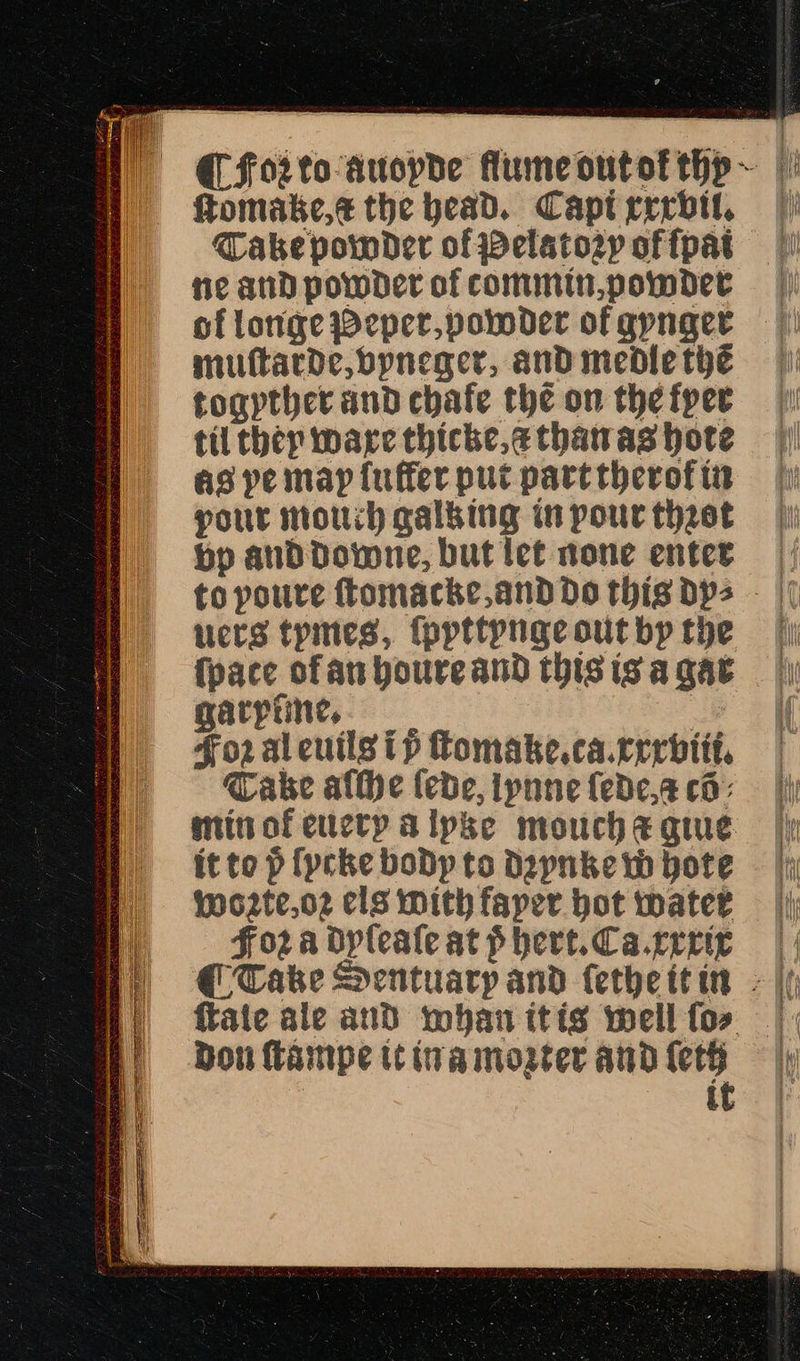 ¶ For to auoyde flume out of thy
ſtomake,⁊ the head. Capi xxxvii.
Take powder of Pelatory of ſpai
ne and powder of commin,powder
of longe Peper,powder of gynger
muſtarde,vyneger, and medle thē
togyther and chafe thē on the fyer
til they waxe thicke,⁊ than as hote
as ye may ſuffer put part therof in
your mouth galking in your throt
vp and downe, but let none enter
to youre ſtomacke,and do this dy⸗
uers tymes, ſpyttynge out by the
ſpace of an houre and this is a gar
garyſme.
For al euils i þͤ ſtomake.ca.xxxviii.
Take aſſhe ſede, lynne ſede,⁊ cō⸗
min of euery a lyke mouch ⁊ giue
it to þͤ ſycke body to drynke wͭ hote
worte,or els with fayer hot water
For a dyſeaſe at þͤ hert. Ca.xxxix
¶ Take Sentuary and ſethe it in
ſtale ale and whan it is well ſo⸗
don ſtampe it in a morter and ſeth
it